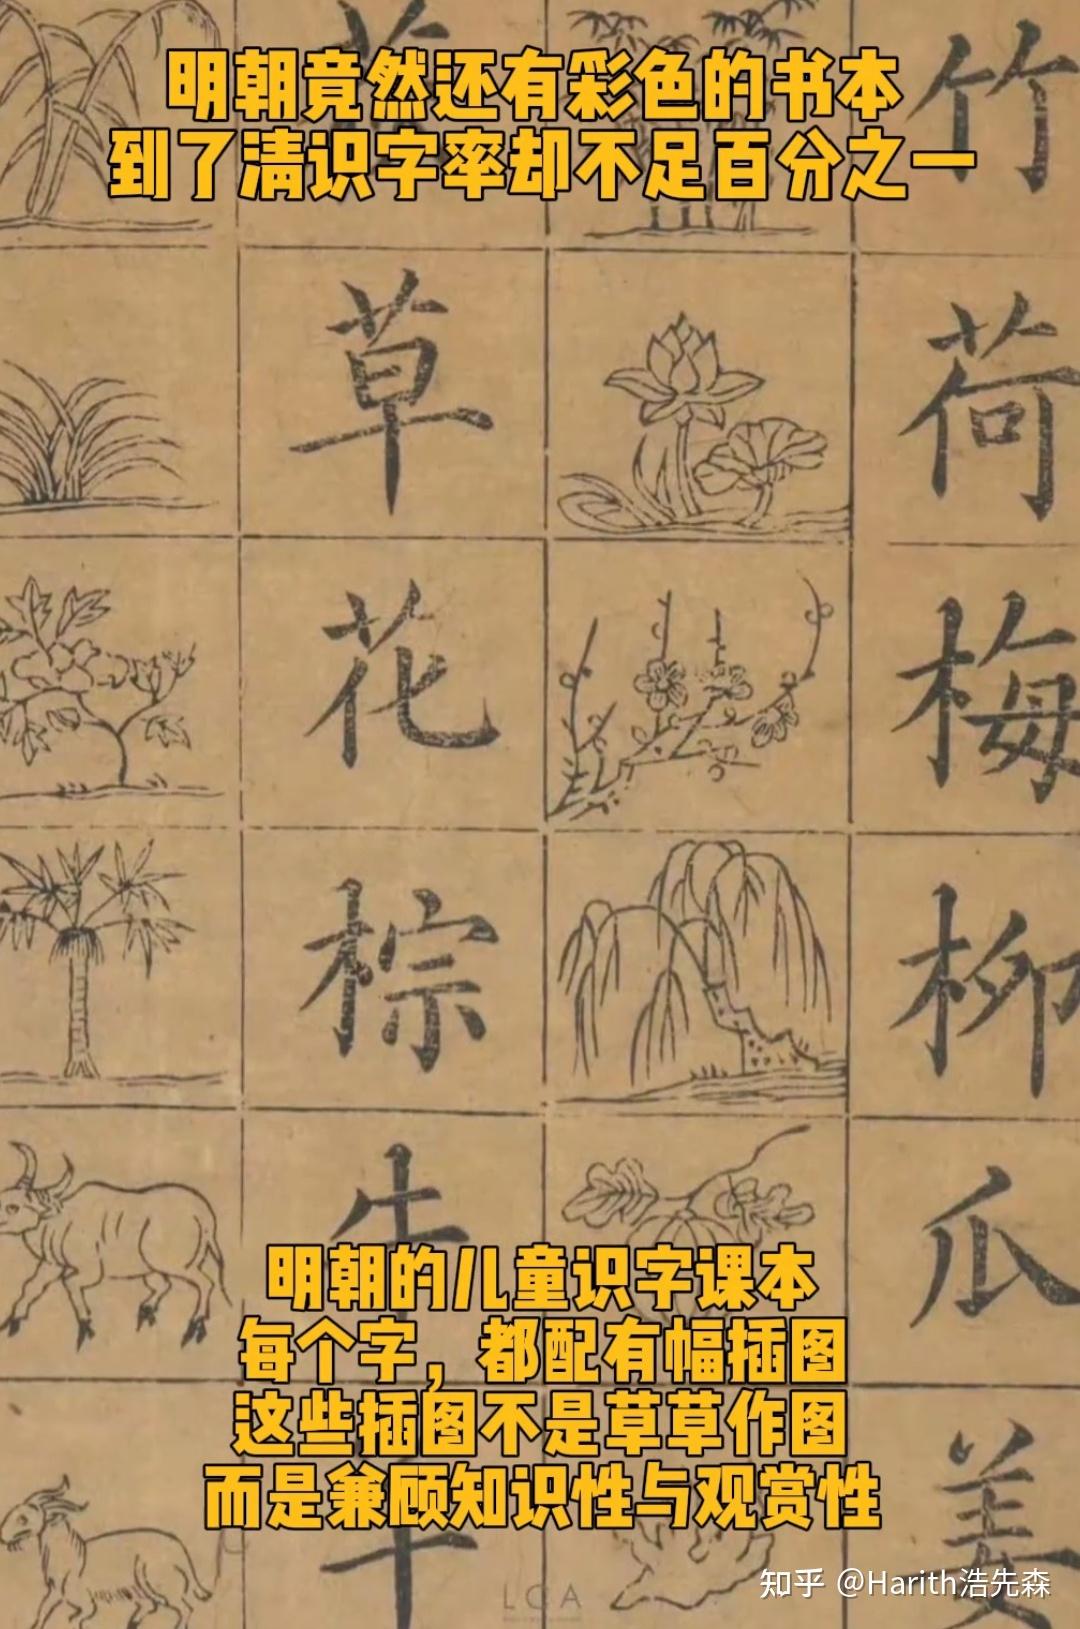 明朝竟然还有彩色的书本
到了清识字率却不足百分之一
竹
草
荷
花
梅
棕
柳
牛
瓜
明朝的儿童识字课本
每个字，都配有幅插图
这些插图不是草草作图
而是兼顾知识性与观赏性
羊
姜
LCA
知乎 @Harith浩先森